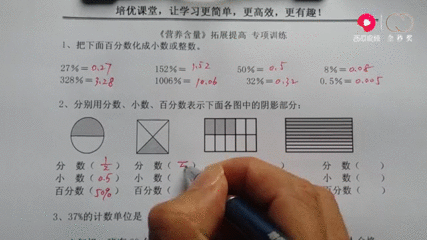 培优课堂，让学习更简单，更高效，更有趣！
西瓜视频
《营养含量》拓展提高 专项训练
1、把下面百分数化成小数或整数。
27%=0.27 152%=1.52 50%=0.5 8%=0.08
328%=3.28 1006%=10.06 32%=0.32 0.5%=0.005
2、分别用分数、小数、百分数表示下面各图中的阴影部分：
分 数（ 1/2 ） 分 数（ ） 数（ ）
小 数（ 0.5 ） 小 数（ 数（ ）
百分数（ 50% ） 百分数（ 百分数（ ）
3、37%的计数单位是